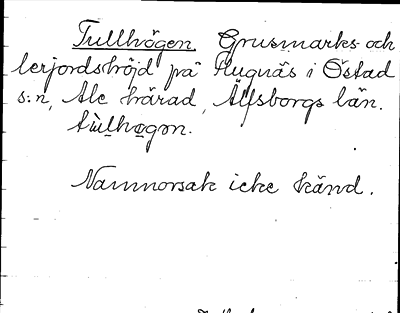 Tullhögen. Grusmarks- och
lerjordshöjd på Flugnäs i Östad
s:n, Ale härad, Älfsborgs län.
tùlhøgən.
Namnorsak icke känd.